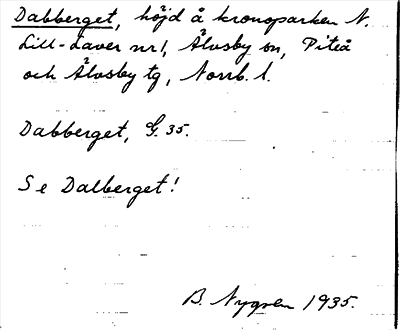 Dabberget, höjd å kronoparken N.
Lill-Laver nr 1, Älvsby sn, Piteå
och Älvsby tg, Norrb. l.
Dabberget, G. 35.
Se Dalberget!
B. Nygren 1935.